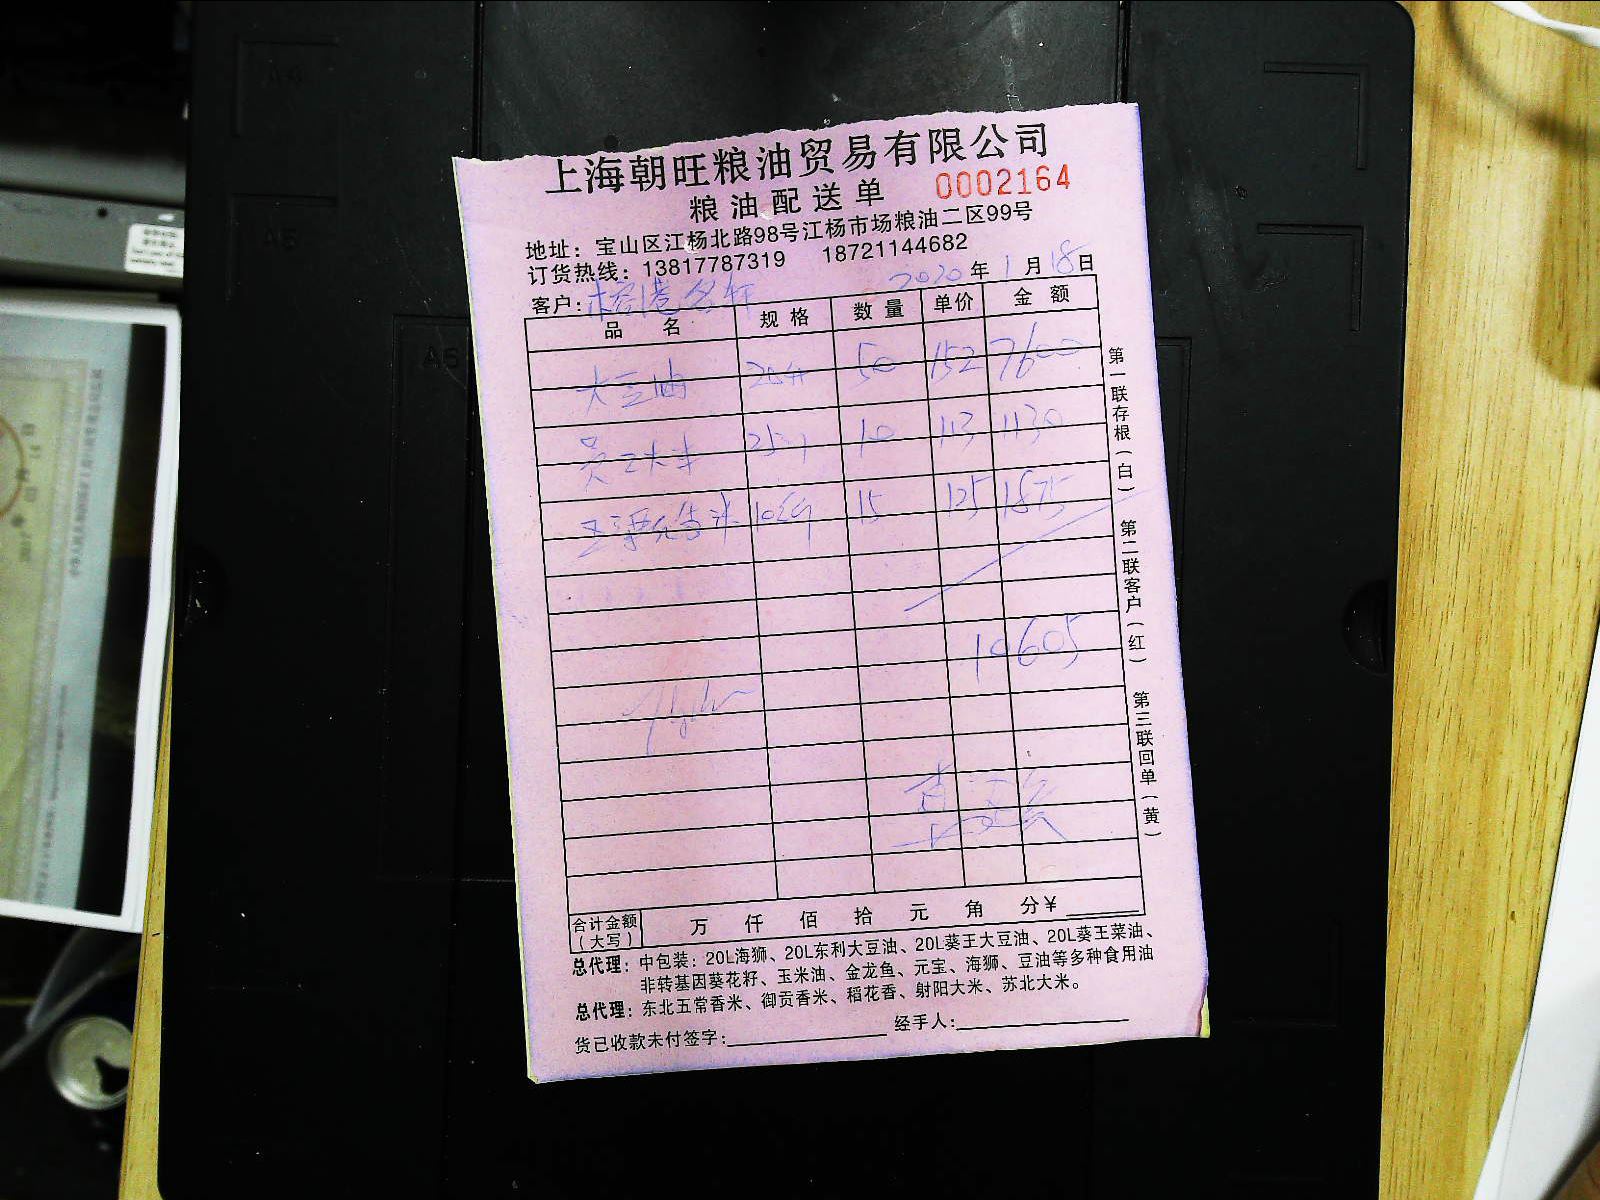 上海朝旺粮油贸易有限公司
粮油配送单 0002164
地址：宝山区江杨北路98号江杨市场粮油二区99号
订货热线：13817787319 18721144682
2020年1月18日
客户：
品名 规格 数量 单价 金额
大豆油 20升 50 152 7600
大米 25 10 113 1130
米 10公斤 15 125 1875
10605
合计金额（大写） 万 仟 佰 拾 元 角 分¥
总代理：中包装：20L海狮、20L东利大豆油、20L葵王大豆油、20L葵王菜油、
非转基因葵花籽、玉米油、金龙鱼、元宝、海狮、豆油等多种食用油
总代理：东北五常香米、御贡香米、稻花香、射阳大米、苏北大米。
货已收款未付签字： 经手人：
第一联存根（白） 第二联客户（红） 第三联回单（黄）
A4
A5
A5